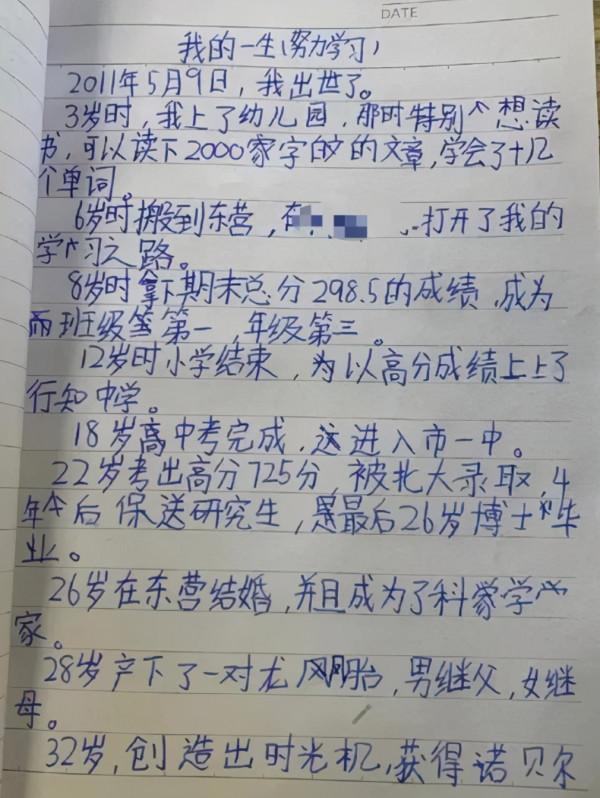 DATE
我的一生(努力学习)
2011年5月9日,我出世了。
3岁时,我上了幼儿园,那时特别想读
书,可以读下2000家字的文章,学会了十几
个单词。
6岁时搬到东营,在 打开了我的
学习之路。
8岁时拿下期末总分298.5的成绩,成为
班级第一,年级第三。
12岁时小学结束,为以高分成绩上上了
行知中学。
18岁高中考完成,进入市一中。
22岁考出高分725分,被北大录取,4
年后保送研究生,最后26岁博士毕
业。
26岁在东营结婚,并且成为了科学
家。
28岁产下了一对龙凤胎,男继父,女继
母。
32岁,创造出时光机,获得诺贝尔